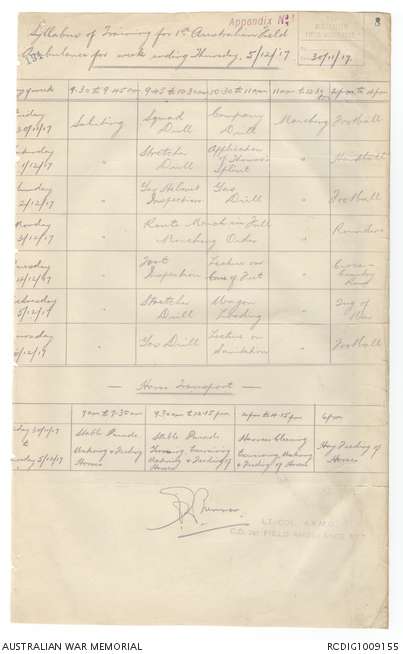 Appendix No
8
Syllabus of Training for 1st Australian Field
Ambulance for week ending Thursday, 5/12/17
30/11/17.
9.30 to 9.45 am 9.45 to 10.30 am 10.30 to 11 am 11 am to 12.30 2 pm to 4 pm
30/11/17 Saluting Squad Drill Company Drill Marching Football
1/12/17 " Stretcher Drill Application of Thomas's Splint "
2/12/17 " Gas Helmet Inspection Gas Drill " Football
3/12/17 " Route March in Full Marching Order " Rounders
4/12/17 " Foot Inspection Lecture on Care of Feet " Cross-Country Road
5/12/17 " Stretcher Drill Wagon Loading " Tug of War
12/17 " Gas Drill Lecture on Sanitation " Football
— Horse Transport —
7 am to 7.30 am 9.30 am to 12.15 pm 2 pm to 4.15 pm 6 pm
30/11/17 to 5/12/17
Stable Parade Watering & Feeding Horses
Stable Parade Grooming Watering & Feeding of Horses
Harness Cleaning Watering & Feeding of Horses
Hay Feeding of Horses
LT. COL. A.A.M.C.
C.O. 1st FIELD AMBULANCE
AUSTRALIAN WAR MEMORIAL
RCDIG1009155